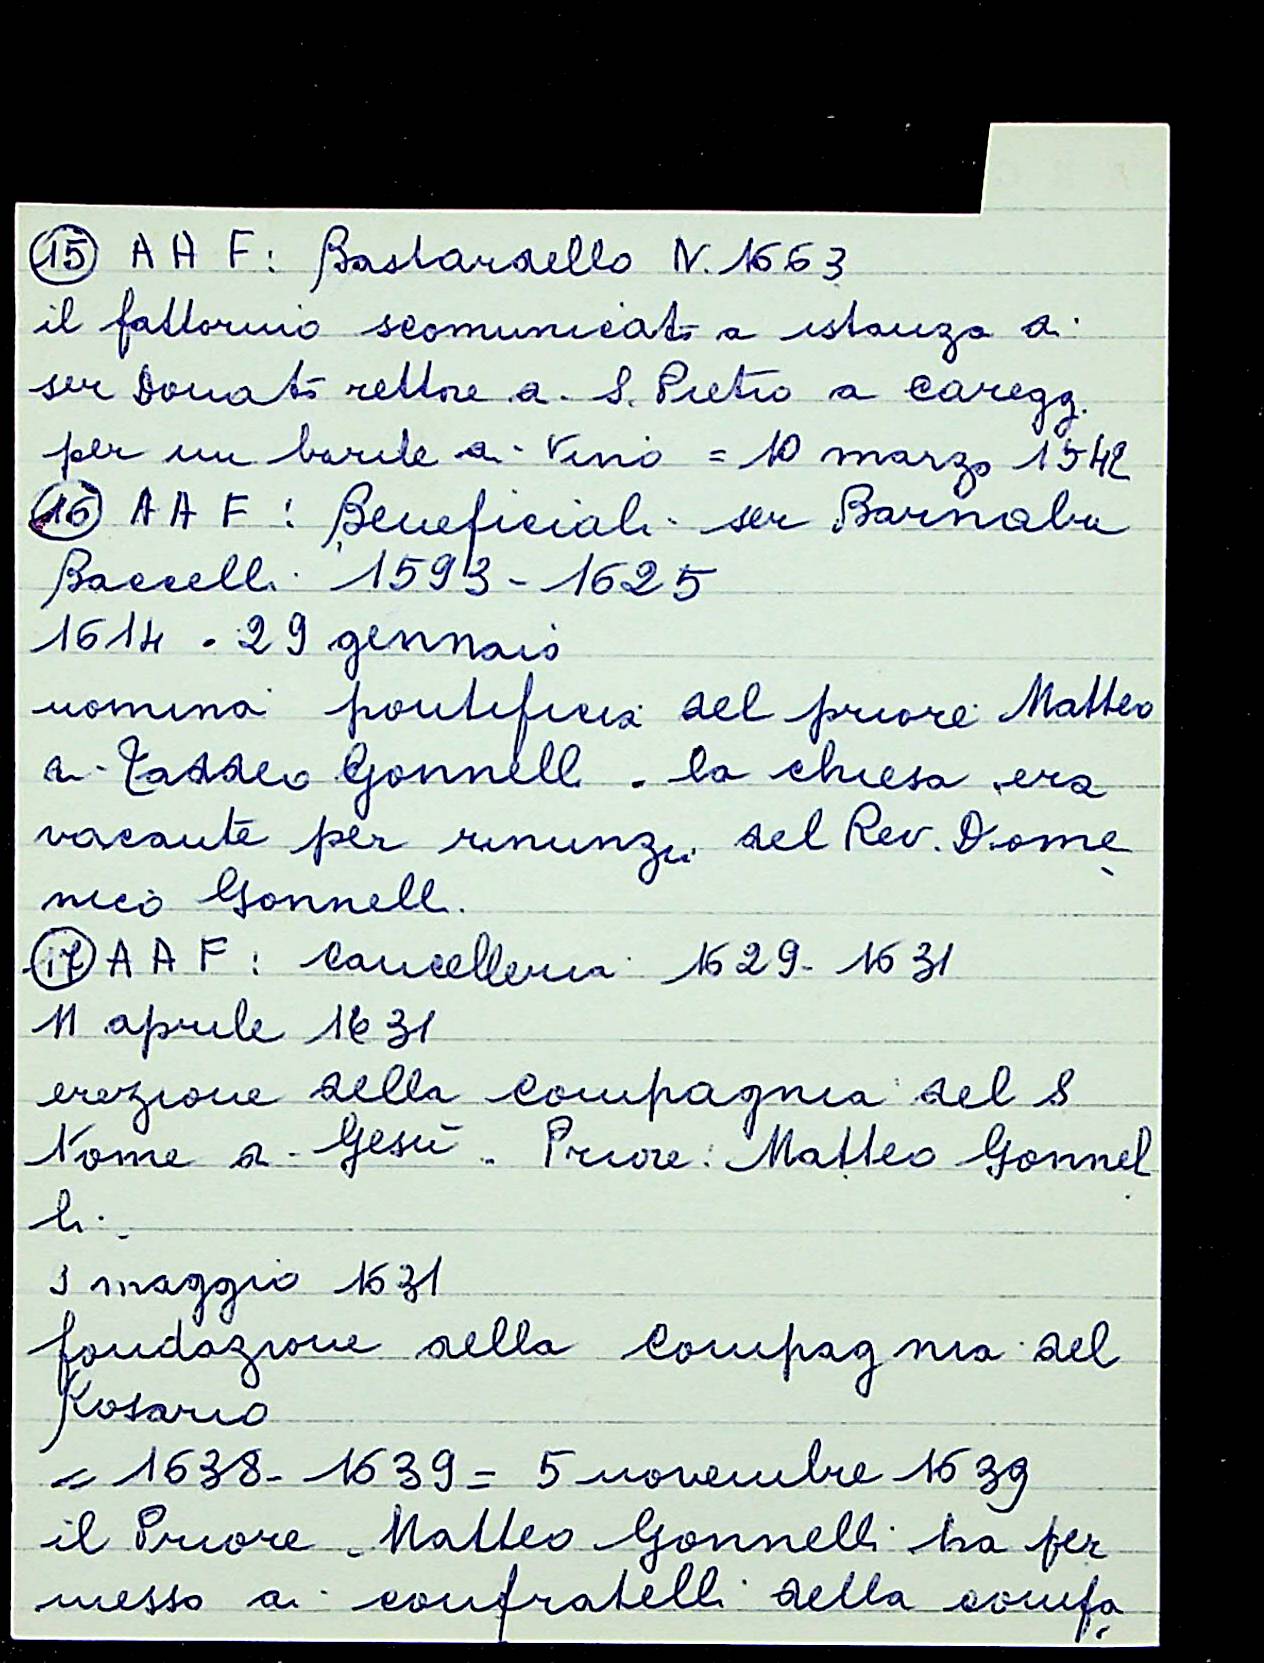 15 A A F: Bastardello N. 1663
il fattorino scomunicato a istanza di
ser Donato rettore di S. Pietro a Caregg.
per un barile di vino = 10 marzo 1542
16 A A F: Beneficiali ser Barnaba
Baccelli 1593-1625
1614 . 29 gennaio
nomina pontificia del priore Matteo
di Taddeo Gonnelli . la chiesa era
vacante per rinunzia del Rev. Dome
nico Gonnelli.
17 A A F: Cancelleria 1629-1631
11 aprile 1631
erezione della compagnia del S
Nome di Gesù . Priore: Matteo Gonnel
li.
3 maggio 1631
fondazione della Compagnia del
Rosario
= 1638-1639 = 5 novembre 1639
il Priore Matteo Gonnelli ha per
messo ai confratelli della compa